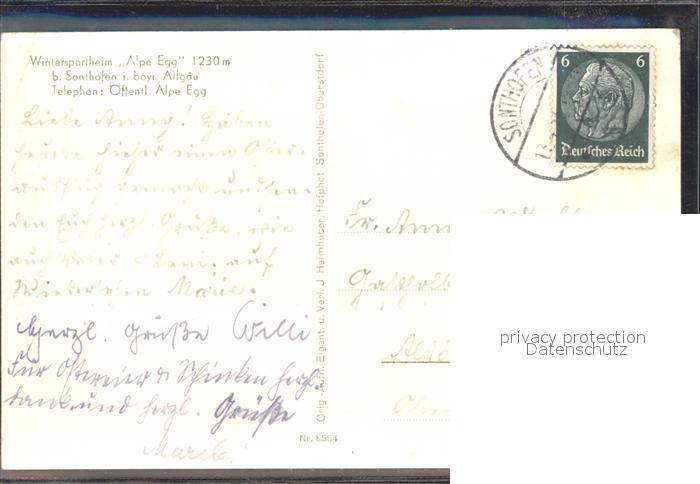 Wintersportheim „Alpe Egg" 1230 m
b. Sonthofen i. bayr. Allgäu
Telephon: Öffentl. Alpe Egg
Liebe Anny! Haben
heute hieher einen Oster-
ausflug gemacht und sen-
den Euch herzl. Grüße, wie
auch Vater & Leni. auf
Wiedersehen Marie.
Herzl. Grüße Willi
Für Ostereier & Schinken herzl.
dank und herzl. Grüße
Orig.-Aufn. Eigent. u. Verl. J. Heimhuber, Hofphot. Sonthofen-Oberstdorf
Nr. 8564
SONTHOFEN
6 6
Deutsches Reich
Fr.
privacy protection
Datenschutz